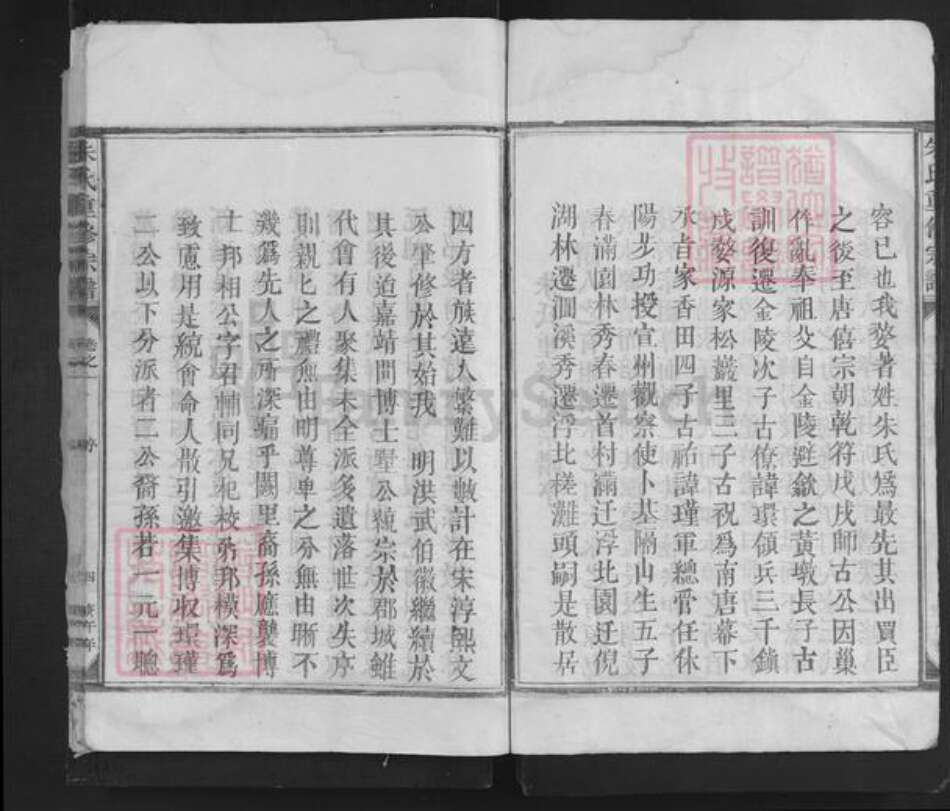 容已也我婺著姓朱氏爲最先其出買臣
之後至唐僖宗朝乾符戊戌師古公因巢
作亂奉祖父自金陵避歙之黃墩長子古
訓復遷金陵次子古僚諱環領兵三千鎮
戍婺源家松巖里三子古祝爲南唐幕下
承旨家香田四子古祐諱瑾軍總管任休
陽步功授宣州觀察使卜基隔山生五子
春滿園林秀春遷首村滿迁浮北園迁倪
湖林遷泗溪秀遷浮北槎灘頭嗣是散居
四方者族遠人繁難以數計在宋淳熙文
公肇修於其始我 明洪武伯徽繼續於
其後迨嘉靖間博士墅公糓宗於郡城雖
代會有人聚集未全派多遺落世次失序
則親匕之禮無由明尊卑之分無由晰不
幾爲先人之所深痛乎闕里裔孫應夔博
士邦相公字君輔同兄杞校弟邦模深爲
致慮用是統會命人散引邀集博収環瑾
二公以下分派者二公裔孫若一元一聰
朱氏重修宗譜
卷之一
序
四